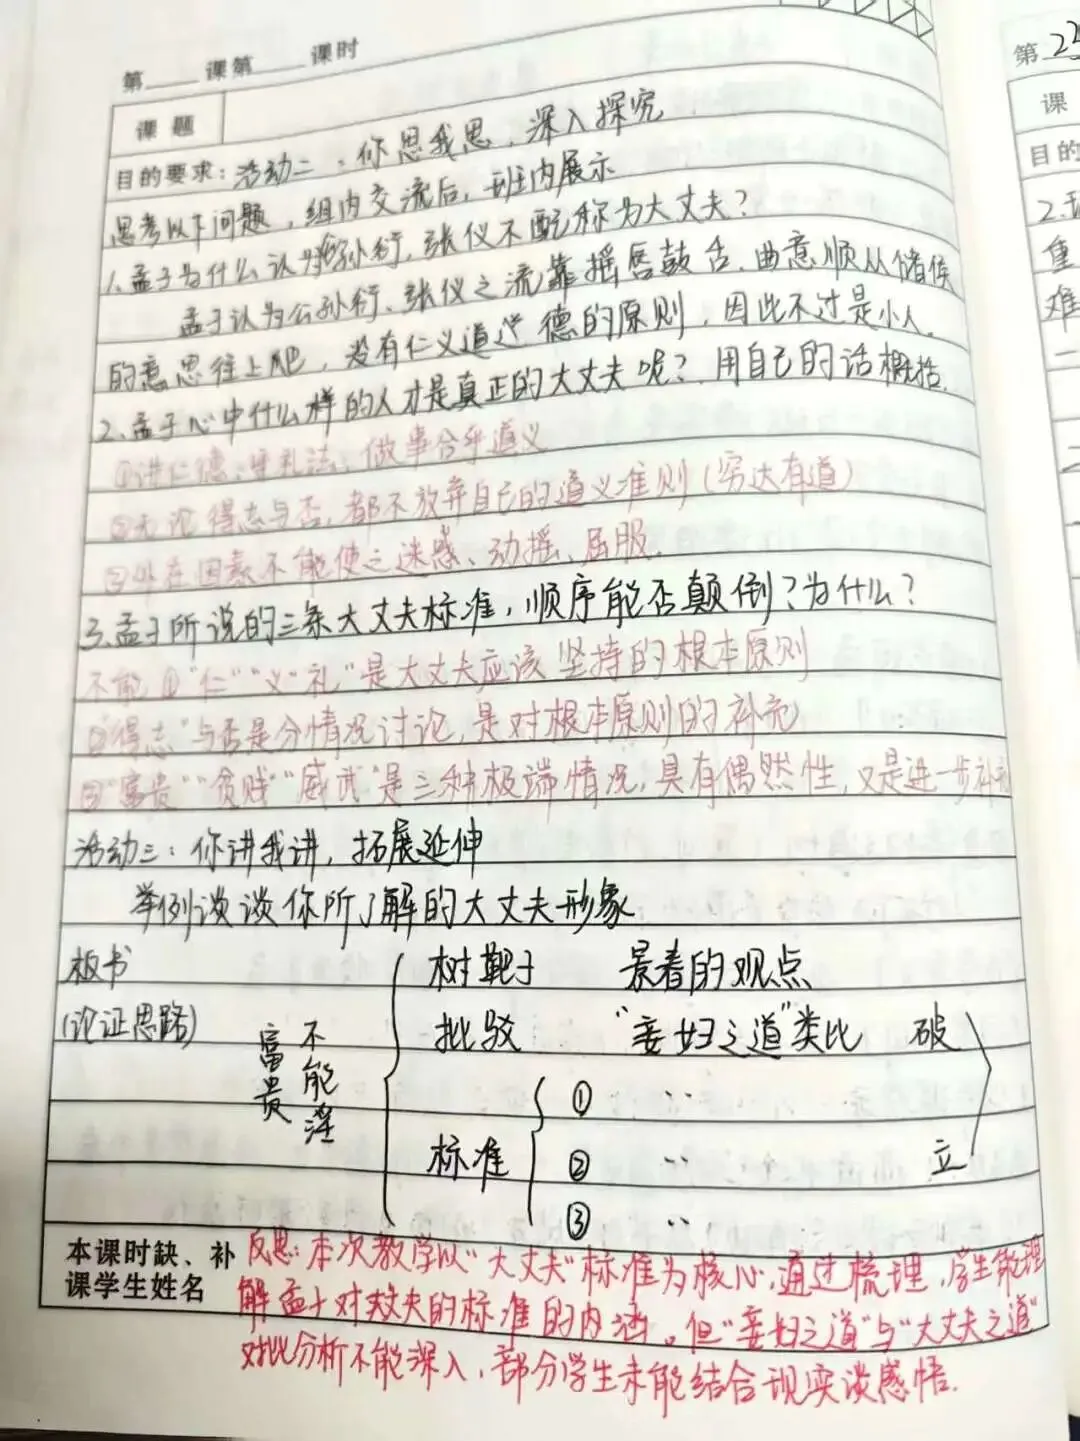 第____课第____课时
课 题
目的要求：活动二：你思我思，深入探究
思考以下问题，组内交流后，班内展示
1.孟子为什么认为孙衍，张仪不配称为大丈夫？
孟子认为公孙衍、张仪之流靠摇唇鼓舌、曲意顺从诸侯
的意思往上爬，没有仁义道德的原则，因此不过是小人。
2.孟子心中什么样的人才是真正的大丈夫呢？用自己的话概括。
①讲仁德，守礼法，做事合乎道义
②无论得志与否，都不放弃自己的道义准则（穷达有道）
③外在因素不能使之迷惑、动摇、屈服。
3.孟子所说的三条大丈夫标准，顺序能否颠倒？为什么？
不能①“仁”“义”“礼”是大丈夫应该坚持的根本原则
②“得志”与否是分情况讨论，是对根本原则的补充
③“富贵”“贫贱”“威武”是三种极端情况，具有偶然性，又是进一步补充
活动三：你讲我讲，拓展延伸
举例谈谈你所了解的大丈夫形象
板书
（论证思路）
富贵
不能淫
树靶子 景春的观点
批驳 “妾妇之道”类比 破
标准
① ..
② .. 立
③ ..
本课时缺、补
课学生姓名
反思：本次教学以“大丈夫”标准为核心，通过梳理，学生能理
解孟子对大丈夫的标准的内涵。但“妾妇之道”与“大丈夫之道”
对比分析不能深入，部分学生未能结合现实谈感悟。
第 22
课
目的
2.
重
难
一